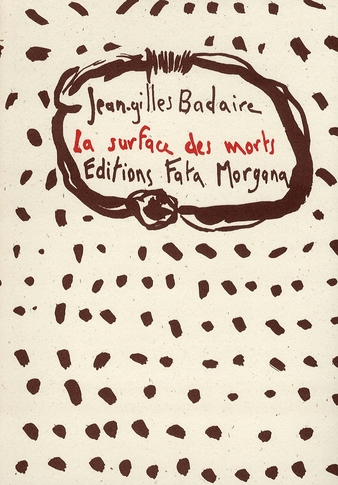 Jean-gilles Badaire
La surface des morts
Editions Fata Morgana